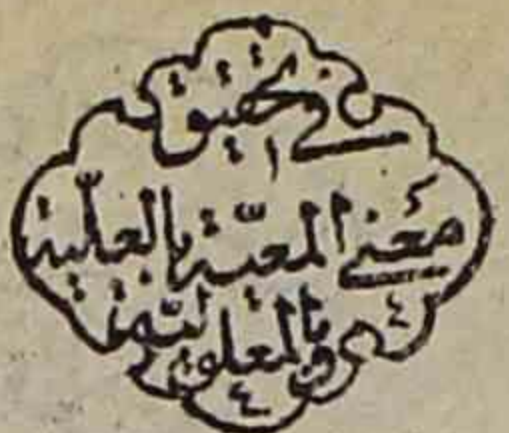 في تحقيق
معنى المعية بالعلية
وبالمعلولية